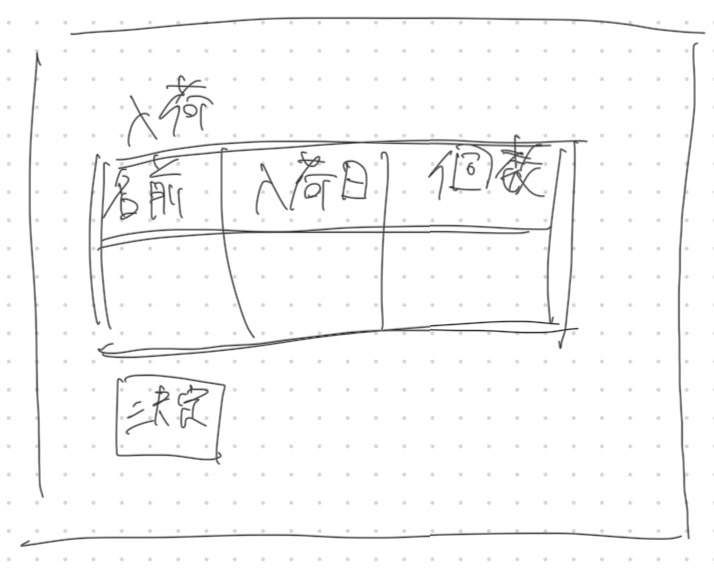 入荷
名前 入荷日 個数
決定